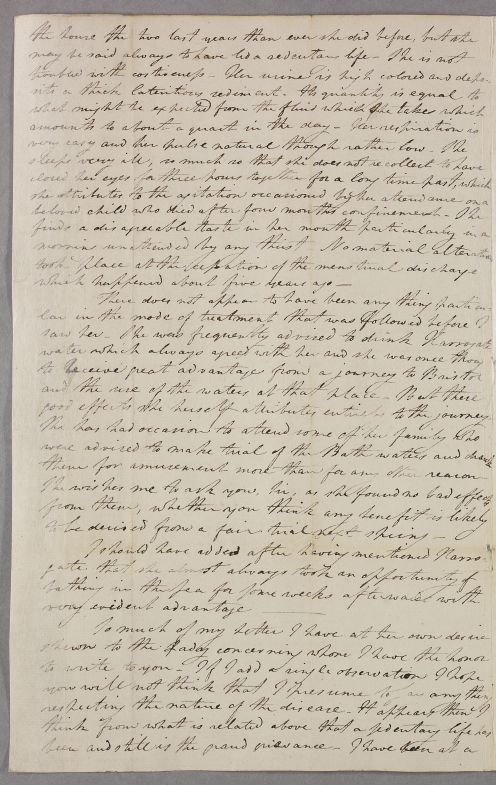 the house the two last years than ever she did before, but she
may be said always to have led a sedentary life - She is not
troubled with costiveness - Her urine is high colored and depo-
sits a thick lateritious sediment - Its quantity is equal to
what might be expected from the fluid which she takes which
amounts to about a quart in the day - Her respiration is
very easy and her pulse natural though rather low - She
sleeps very ill, so much so that she does not recollect to have
closed her eyes for three hours together for a long time past, which
she attributes to the agitation occasioned by her attendance on a
beloved child who died after four months confinement - She
finds a disagreeable taste in her mouth particularly in a
morning unattended by any thirst - No material alteration
took place at the cessation of the menstrual discharge
which happened about five years ago -
There does not appear to have been any thing particu-
lar in the mode of treatment that was followed before I
saw her - She was frequently advised to drink Harrogate
water which always agreed with her and she was once thought
to receive great advantages from a journey to Bristol
and the use of the waters at that place - But these
good effects she herself attributes entirely to the journey
She has had occasion to attend some of her family who
were advised to make trial of the Bath waters and drank
them for amusement more than for any other reason
She wishes me to ask you, Sir, as she found no bad effects
from them, whether you think any benefit is likely
to be derived from a fair trial next spring -
I should have added after having mentioned Harro-
gate that she almost always took an opportunity of
bathing in the sea for some weeks afterwards with
very evident advantage
So much of my letter I have at her own desire
shewn to the Lady concerning whom I have the honor
to write to you - If I add a single observation I hope
you will not think that I presume to any thing
respecting the nature of the disease. It appears then I
think from what is related above that a sedentary life has
been and still is the grand grievance - I have been at a